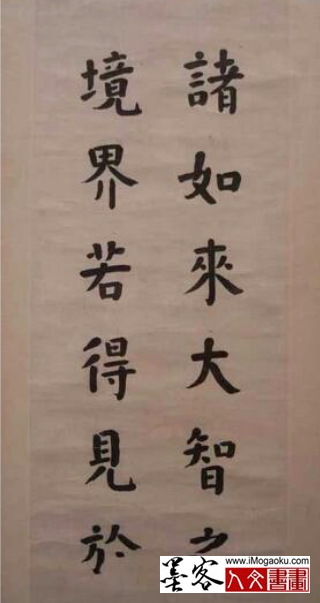 諸如來大智之
境界若得見於
www.iMogaoku.com
墨客
人文書畫